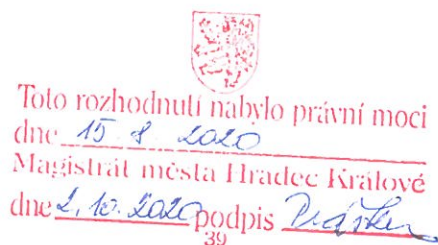 Toto rozhodnutí nabylo právní moci
dne 15. 8. 2020
Magistrát města Hradec Králové
dne 2. 10. 2020 podpis
39